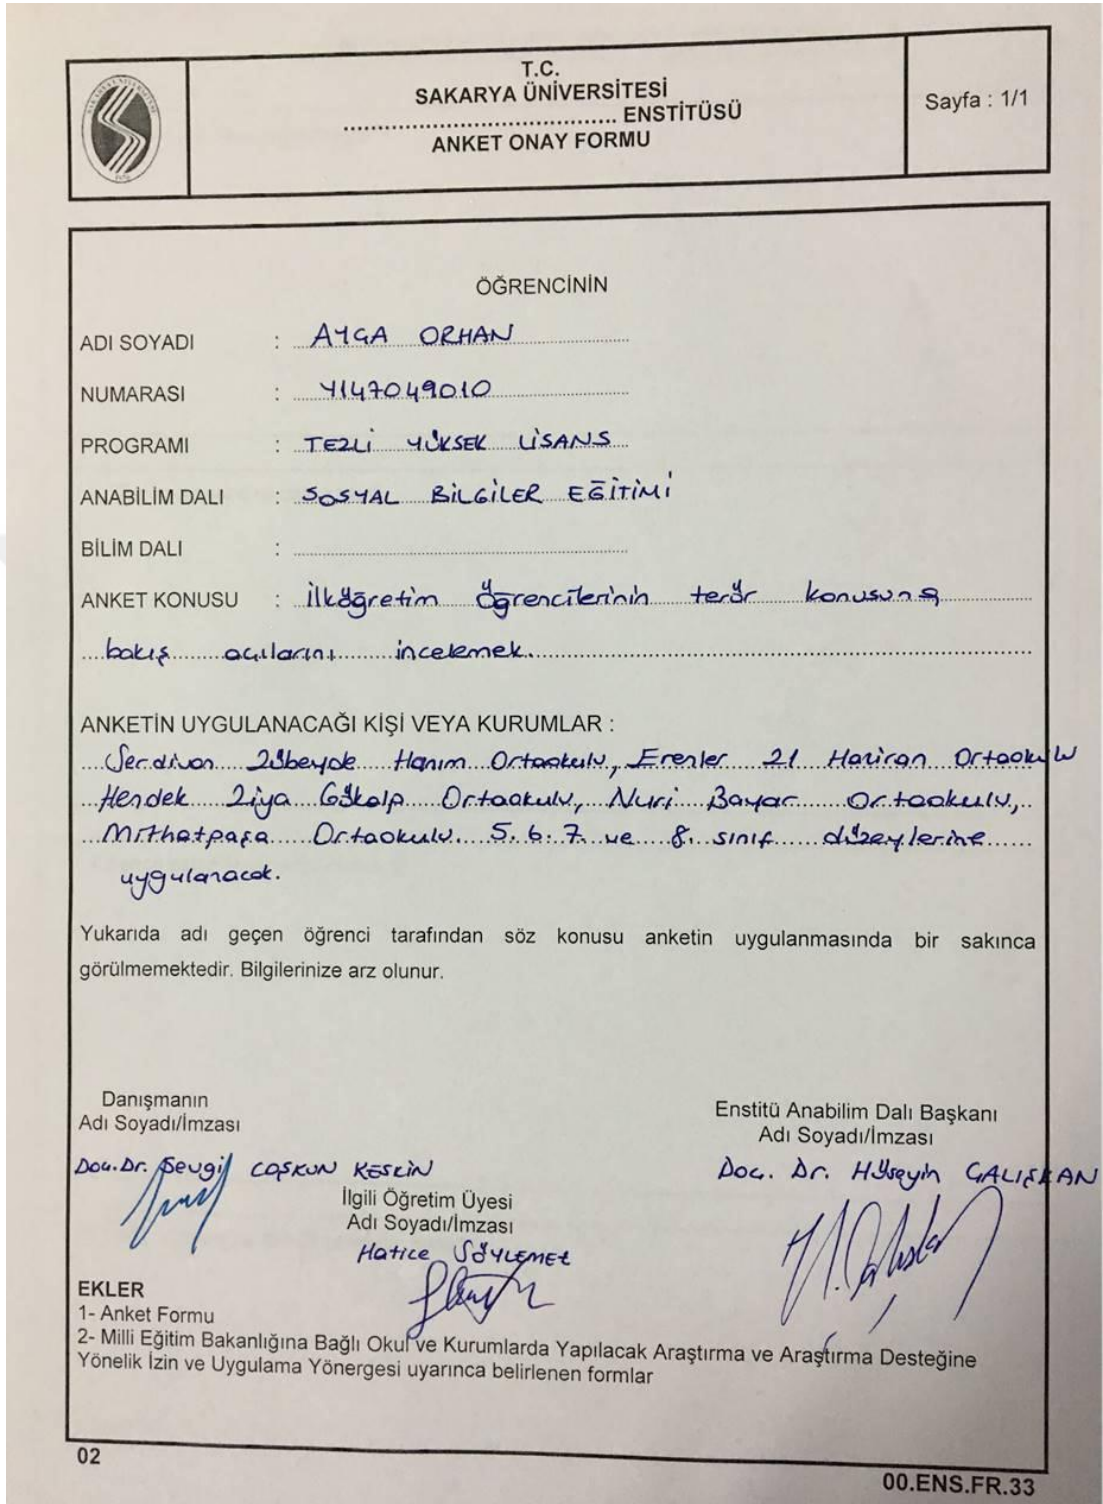 T.C.
SAKARYA ÜNİVERSİTESİ
..................................... ENSTİTÜSÜ
ANKET ONAY FORMU
Sayfa : 1/1
ÖĞRENCİNİN
ADI SOYADI : AYÇA ORHAN
NUMARASI : Y147049010
PROGRAMI : TEZLİ YÜKSEK LİSANS
ANABİLİM DALI : SOSYAL BİLGİLER EĞİTİMİ
BİLİM DALI :
ANKET KONUSU : İlköğretim öğrencilerinin terör konusuna
bakış açılarını incelemek.
ANKETİN UYGULANACAĞI KİŞİ VEYA KURUMLAR :
Serdivan Zübeyde Hanım Ortaokulu, Erenler 21 Haziran Ortaokulu
Hendek Ziya Gökalp Ortaokulu, Nuri Bayar Ortaokulu,
Mithatpaşa Ortaokulu 5. 6. 7. ve 8. sınıf düzeylerine
uygulanacak.
Yukarıda adı geçen öğrenci tarafından söz konusu anketin uygulanmasında bir sakınca
görülmemektedir. Bilgilerinize arz olunur.
Danışmanın
Adı Soyadı/İmzası
Doç. Dr. Sevgi COŞKUN KESKİN
İlgili Öğretim Üyesi
Adı Soyadı/İmzası
Hatice SÖYLEMEZ
Enstitü Anabilim Dalı Başkanı
Adı Soyadı/İmzası
Doç. Dr. Hüseyin ÇALIŞKAN
EKLER
1- Anket Formu
2- Milli Eğitim Bakanlığına Bağlı Okul ve Kurumlarda Yapılacak Araştırma ve Araştırma Desteğine
Yönelik İzin ve Uygulama Yönergesi uyarınca belirlenen formlar
02
00.ENS.FR.33